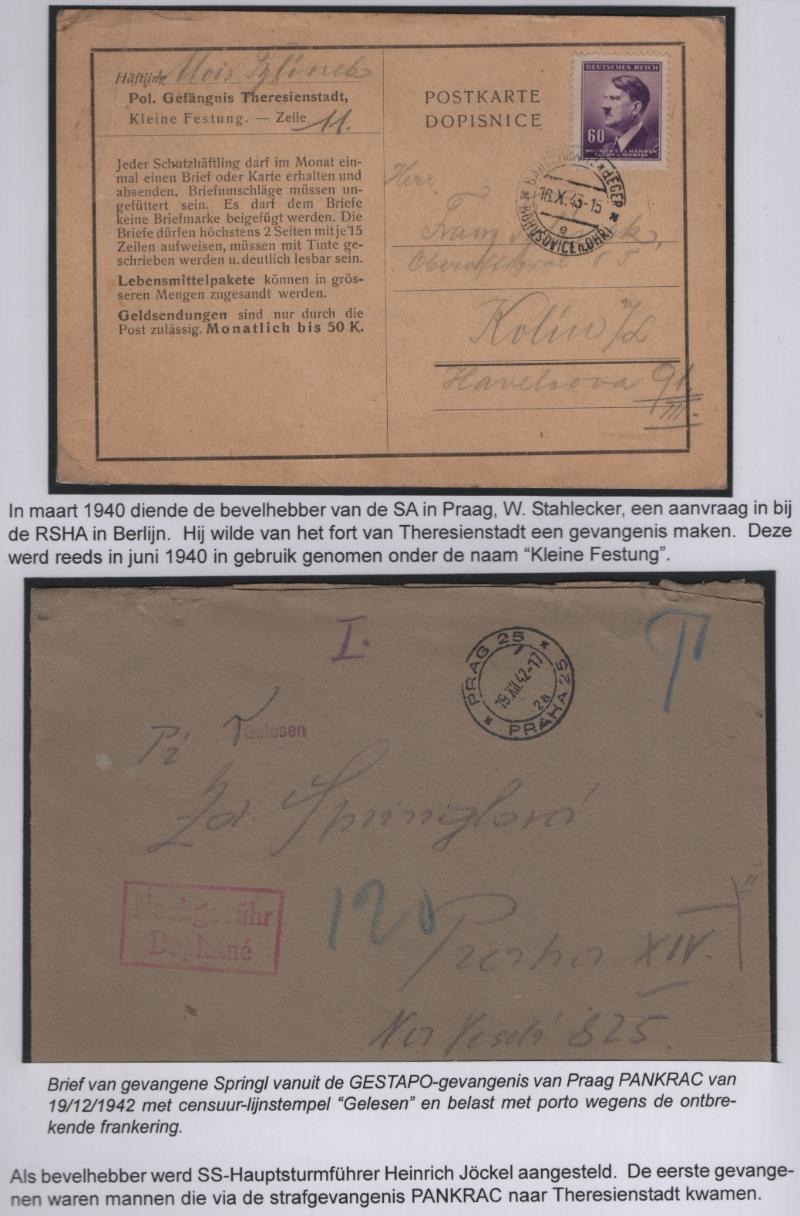 Häftling Alois
Pol. Gefängnis Theresienstadt,
Kleine Festung. — Zelle 11.
Jeder Schutzhäftling darf im Monat ein-
mal einen Brief oder Karte erhalten und
absenden. Briefumschläge müssen un-
gefüttert sein. Es darf dem Briefe
keine Briefmarke beigefügt werden. Die
Briefe dürfen höchstens 2 Seiten mit je 15
Zeilen aufweisen, müssen mit Tinte ge-
schrieben werden u. deutlich lesbar sein.
Lebensmittelpakete können in grös-
seren Mengen zugesandt werden.
Geldsendungen sind nur durch die
Post zulässig. Monatlich bis 50 K.
POSTKARTE
DOPISNICE
DEUTSCHES REICH
60
BÖHMEN UND MÄHREN
16.X.43-15
e
BOHUŠOVICE n. OHŘ.
Herr
Franz
Kolín
Havelsova 91
III.
In maart 1940 diende de bevelhebber van de SA in Praag, W. Stahlecker, een aanvraag in bij
de RSHA in Berlijn. Hij wilde van het fort van Theresienstadt een gevangenis maken. Deze
werd reeds in juni 1940 in gebruik genomen onder de naam “Kleine Festung”.
I.
PRAG 25
19.XII.42-17
2a
PRAHA 25
T
Gelesen
Zd. Springlová
Nachgebühr
Doplatné
120
Praha XIV.
825
Brief van gevangene Springl vanuit de GESTAPO-gevangenis van Praag PANKRAC van
19/12/1942 met censuur-lijnstempel “Gelesen” en belast met porto wegens de ontbre-
kende frankering.
Als bevelhebber werd SS-Hauptsturmführer Heinrich Jöckel aangesteld. De eerste gevange-
nen waren mannen die via de strafgevangenis PANKRAC naar Theresienstadt kwamen.